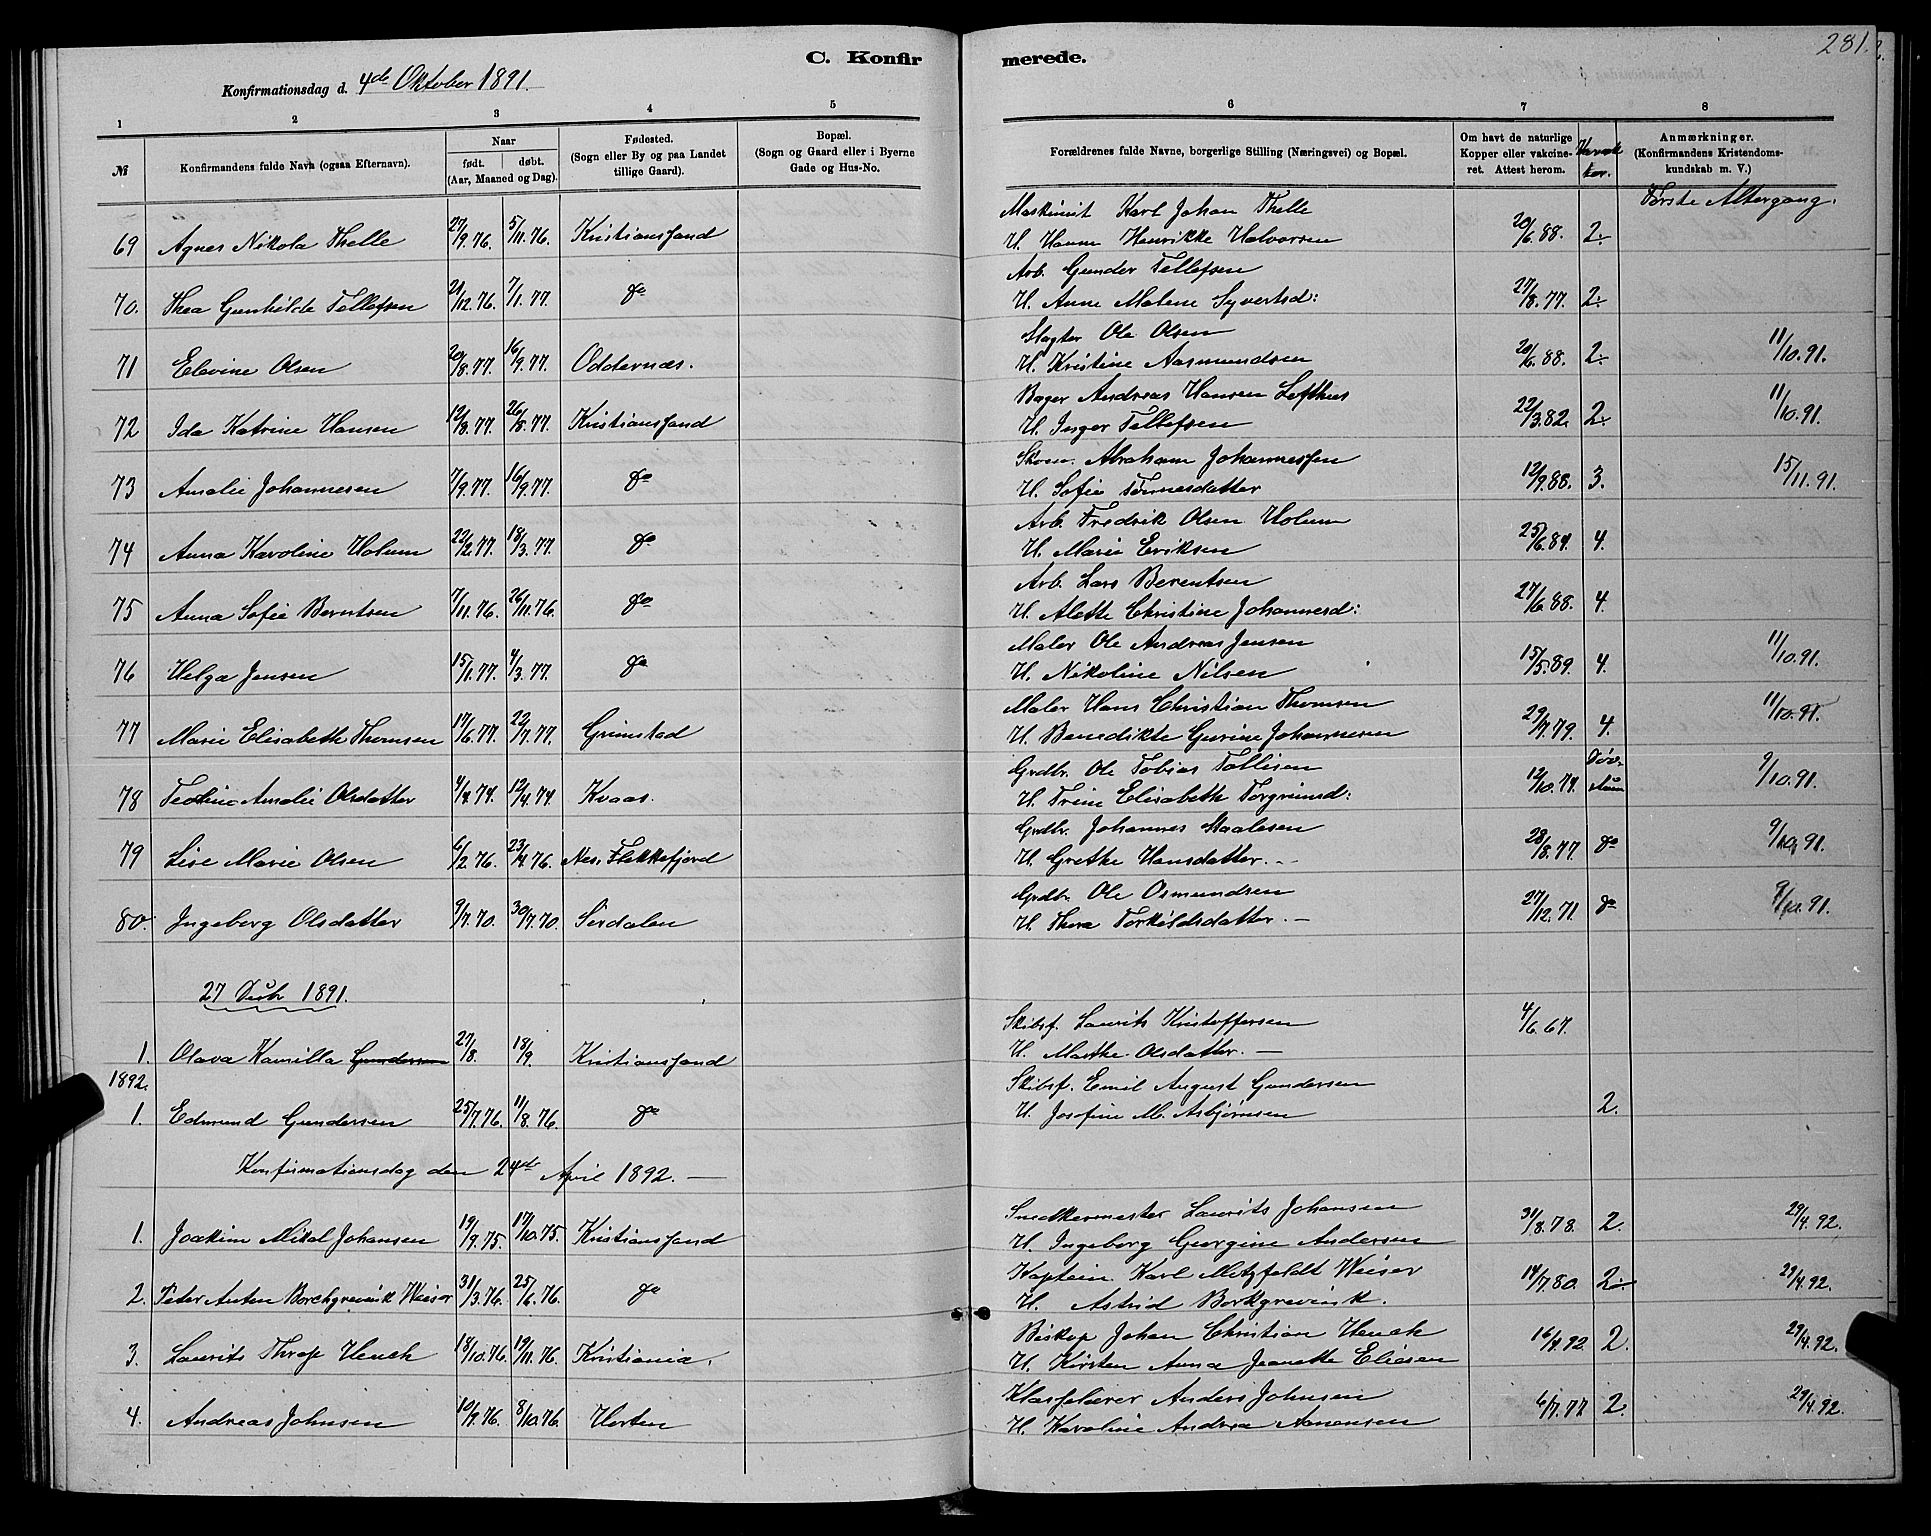 281.
C. Konfirmerede.
Konfirmationsdag d. 4de Oktober 1891.
1 2 3 4 5 6 7 8
№ Konfirmandens fulde Navn (ogsaa Efternavn). Naar født. døbt. (Aar, Maaned og Dag). Fødested. (Sogn eller By og paa Landet tillige Gaard). Bopæl. (Sogn og Gaard eller i Byerne Gade og Hus-No. Forældrenes fulde Navne, borgerlige Stilling (Næringsvei) og Bopæl. Om havt de naturlige Kopper eller vakcineret. Attest herom. Anmærkninger. (Konfirmandens Kristendomskundskab m. V.)
Første Altergang.
Maskinist Karl Johan Thelle
69 Agnes Nikola Thelle 27/9.76. 5/11.76. Kristianssand H. Hanne Henrikke Halvorsen 20/6.88. 2.
Arb. Gunder Tellefsen
70. Thea Gunhilde Tellefsen 21/12.76. 7/1.77. do H. Anne Malene Syvertsd: 27/8.77. 2.
Slagter Ole Olsen
71 Elevine Olsen 20/8.77. 16/9.77. Oddernæs. H. Kristine Aasmundsen 20/6.88. 2. 11/10.91.
Bager Andreas Hansen Lofthus
72 Ida Katrine Hansen 12/8.77. 26/8.77. Kristianssand H. Inger Tellefsen 22/3.82. 2. 11/10.91.
Skom. Abraham Johannessen
73 Amalie Johannesen 7/9.77. 16/9.77. do H. Sofie Tønnesdatter 12/9.88. 3. 15/11.91.
Arb. Fredrik Olsen Holum
74 Anna Karoline Holum 22/2.77. 18/3.77. do H. Marie Eriksen 25/6.84. 4.
Arb. Lars Berentsen
75 Anna Sofie Berntsen 7/11.76. 26/11.76. do H. Alette Christine Johannesd: 27/6.88. 4.
Maler Ole Andreas Jensen
76 Helga Jensen 15/1.77. 4/3.77. do H. Nikoline Nilsen 15/5.89 4. 11/10.91.
Maler Hans Christian Thomsen
77 Marie Elisabeth Thomsen 17/6.77. 22/7.77. Grimstad H. Benedikte Gurine Johannesen 29/7.79. 4. 11/10.91.
Grdbr. Ole Tobias Tollisen
78 Teoline Amalie Olsdatter 4/4.74. 12/4.74 Kvaas. H. Trine Elisabeth Torgrimsd: 12/10.74. Døvstum 9/10.91.
Grdbr. Johannes Staalesen
79 Lise Marie Olsen 6/2.76. 23/4.76. Nes. Flekkefjord H. Grethe Hansdatter. 28/8.77. do 9/10.91.
Grdbr. Ole Osmundsen
80. Ingeborg Olsdatter 9/7.70. 30/7.70. Sirdalen H. Thora Torkildsdatter. 27/12.71. do 9/10.91.
27 Decbr 1891.
Skibsf. Laurits Kristoffersen 4/6.67.
1. Olava Kamilla Gundersen 27/8. 18/9. Kristianssand H. Marthe Olsdatter.
1892. Skibsf. Emil August Gundersen
1. Edmund Gundersen 25/7.76. 11/8.76. do H. Josefine M. Asbjørnsen 2.
Konfirmationsdag den 24de April 1892.
Snedkermester Laurits Johansen
1. Joakim Mikal Johansen 19/9.75. 17/10.75. Kristianssand H. Ingeborg Georgine Andersen 31/8.78. 2. 29/4.92.
Kaptein Karl Metzfeldt Weiser
2. Peter Anton Borchgrevink Wieser 31/3.76. 25/6.76. do H. Astrid Borkgrevink. 14/7.80. 2. 29/4.92.
Biskop Johan Christian Heuch
3. Laurits Thrap Heuch 18/10.76. 19/11.76. Kristiania. H. Kirsten Anna Jeanette Eliesen 16/4.92. 2. 29/4.92.
Klasselærer Anders Johnsen
4. Andreas Johnsen 10/9.76. 8/10.76. Horten H. Karoline Andrea Amonsen 6/7.77. 2. 29/4.92.